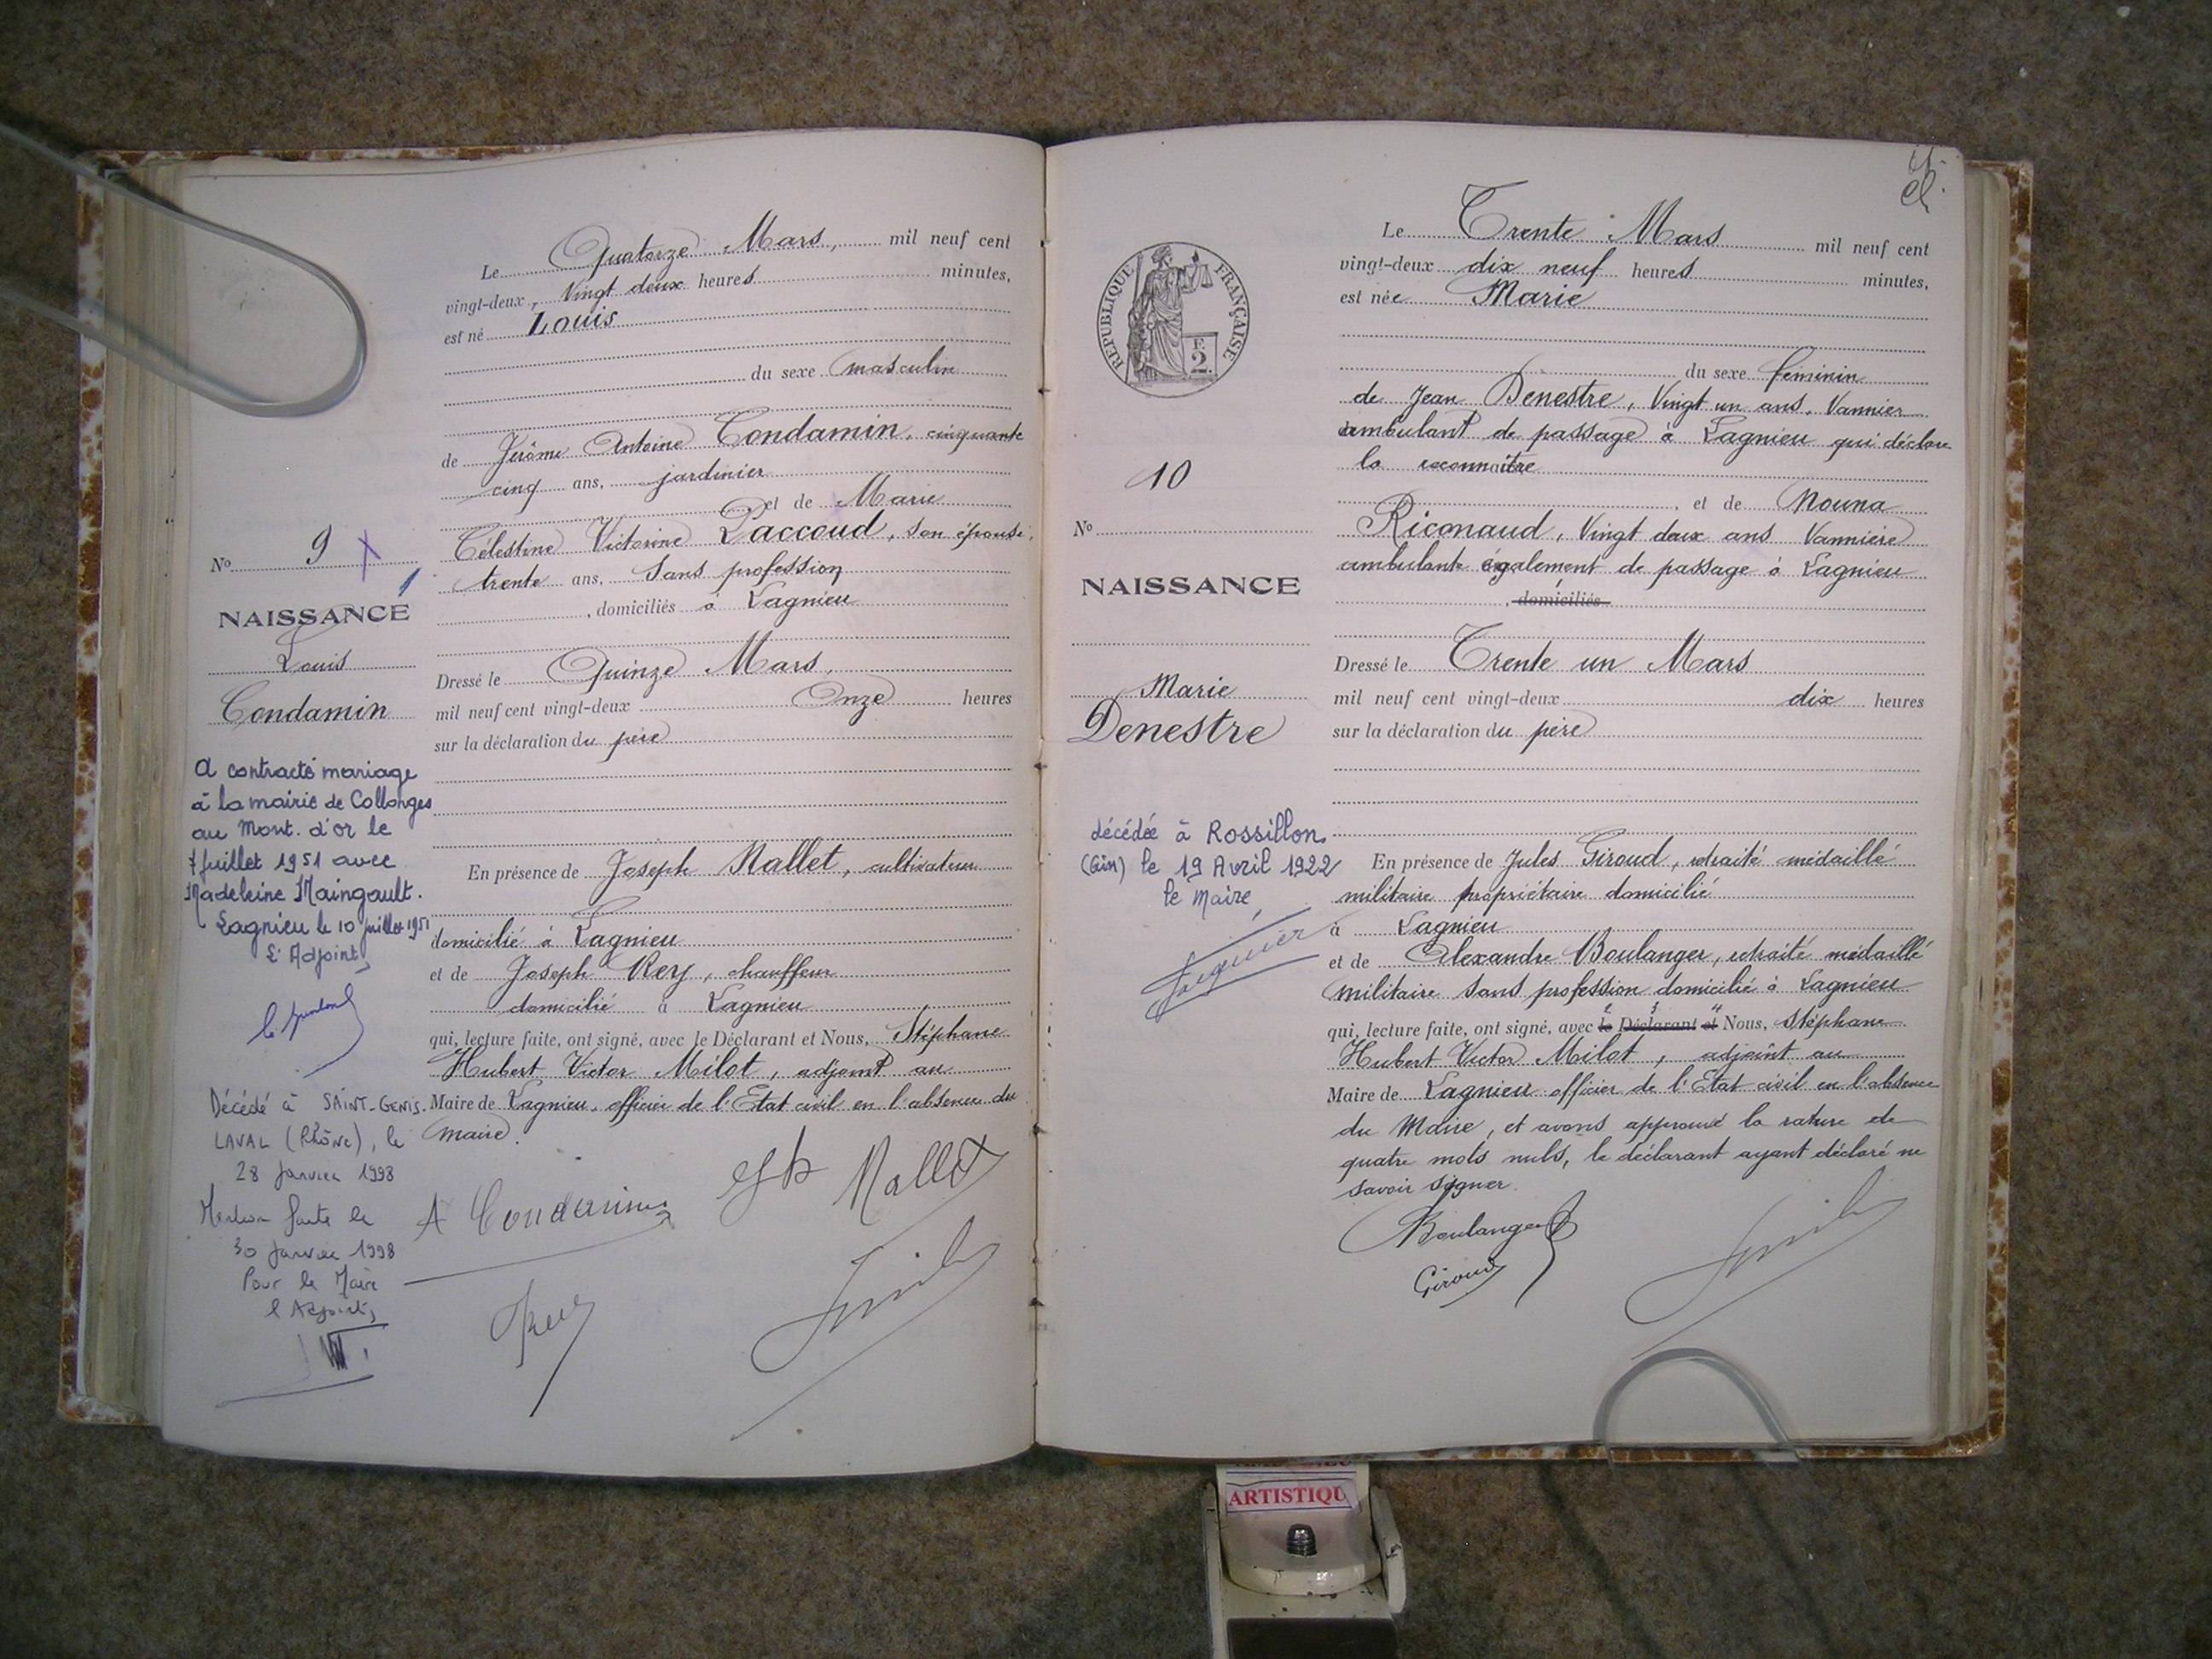 Le Quatorze Mars, mil neuf cent
vingt-deux, Vingt deux heures minutes,
est né Louis
du sexe masculin
de Jérôme Antoine Condamin, cinquante
cinq ans, jardinier
et de Marie
Célestine Victorine Paccoud, son épouse,
trente ans, Sans profession
, domiciliés à Lagnieu
Dressé le Quinze Mars,
mil neuf cent vingt-deux Onze heures
sur la déclaration du père
En présence de Joseph Mallet, cultivateur
domicilié à Lagnieu
et de Joseph Rey, chauffeur
domicilié à Lagnieu
qui, lecture faite, ont signé, avec le Déclarant et Nous, Stéphane
Hubert Victor Milot, adjoint au
Maire de Lagnieu, officier de l'Etat civil en l'absence du
maire.
A Condamin
Mallet
Rey
No 9
1
NAISSANCE
Louis
Condamin
A contracté mariage
à la mairie de Collonges
au Mont. d'or le
7 juillet 1951 avec
Madeleine Maingault.
Lagnieu le 10 juillet 1951
L'Adjoint,
Décédé à SAINT-GENIS.
LAVAL (Rhône), le
28 janvier 1998
Mention faite le
30 janvier 1998
Pour le Maire
l'Adjoint,
RÉPUBLIQUE FRANÇAISE
F.
2.
10
No
NAISSANCE
Marie
Denestre
décédée à Rossillon
(Ain) le 19 Avril 1922
le Maire,
Le Trente Mars mil neuf cent
vingt-deux dix neuf heures minutes,
est née Marie
du sexe féminin
de Jean Denestre, Vingt un ans, Vannier
ambulant de passage à Lagnieu qui déclare
la reconnaître
, et de Nouna
Riconaud, Vingt deux ans Vannière
ambulante également de passage à Lagnieu
, domiciliés
Dressé le Trente un Mars
mil neuf cent vingt-deux dix heures
sur la déclaration du père
En présence de Jules Giroud, retraité médaillé
militaire propriétaire domicilié
à Lagnieu
et de Alexandre Boulanger, retraité médaillé
militaire sans profession domicilié à Lagnieu
qui, lecture faite, ont signé, avec le Déclarant et Nous, Stéphane
Hubert Victor Milot, adjoint au
Maire de Lagnieu officier de l'Etat civil en l'absence
du Maire, et avons approuvé la rature de
quatre mots nuls, le déclarant ayant déclaré ne
savoir signer.
Boulanger
Giroud
ARTISTIQU